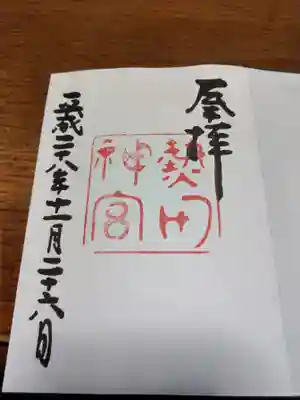 奉拝
熱田
神宮
平成二十八年十一月二十六日